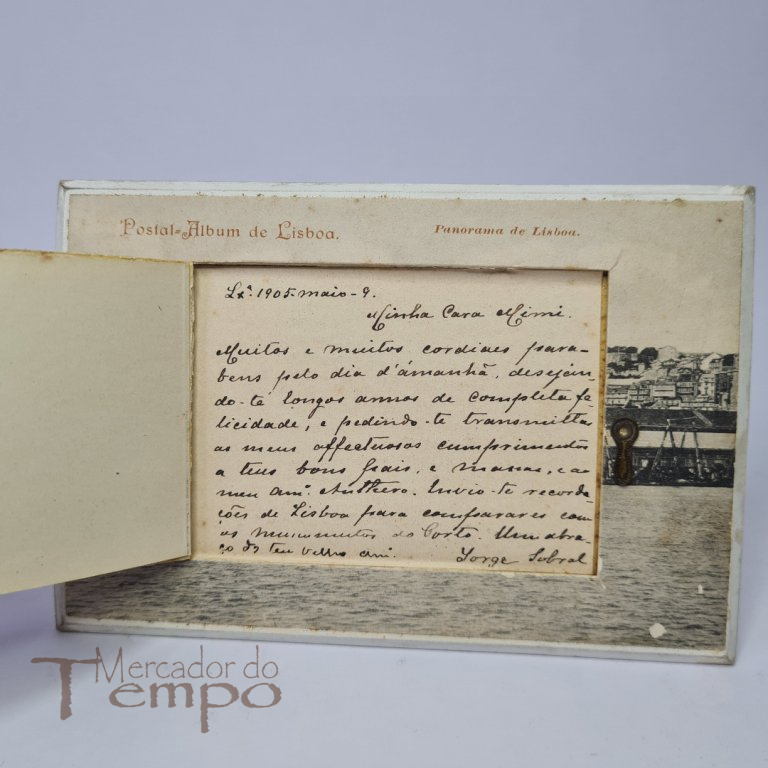 Postal-Album de Lisboa.
Panorama de Lisboa.
Lxª. 1905-maio-9.
Minha Cara Mimi.
Muitos e muitos cordiaes para-
bens pelo dia d'ámanhã, desejan-
do-te longos annos de completa fe-
licidade, e pedindo-te transmittas
os meus affectuosos cumprimentos
a teus bons Pais, e manas, e ao
meu amº. Anthero. Envio-te recorda-
ções de Lisboa para comparares com
os monumentos do Porto. Um abra-
ço do teu velho amº.
Jorge Sobral
Mercador do
Tempo